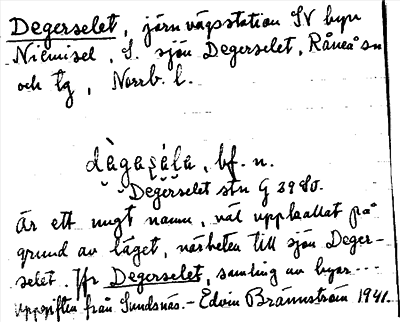 Degerselet, järnvägsstation SV byn
Niemisel, S. sjön Degerselet, Råneå sn
och tg, Norrb. l.
dàgasa̱la, bf. n.
Degerselet stn G 3980.
Är ett ungt namn, väl uppkallat på
grund av läget, närheten till sjön Deger-
selet. Jfr Degerselet, samling av byar...
Uppgiften från Sundsnäs. - Edvin Brännström 1941.